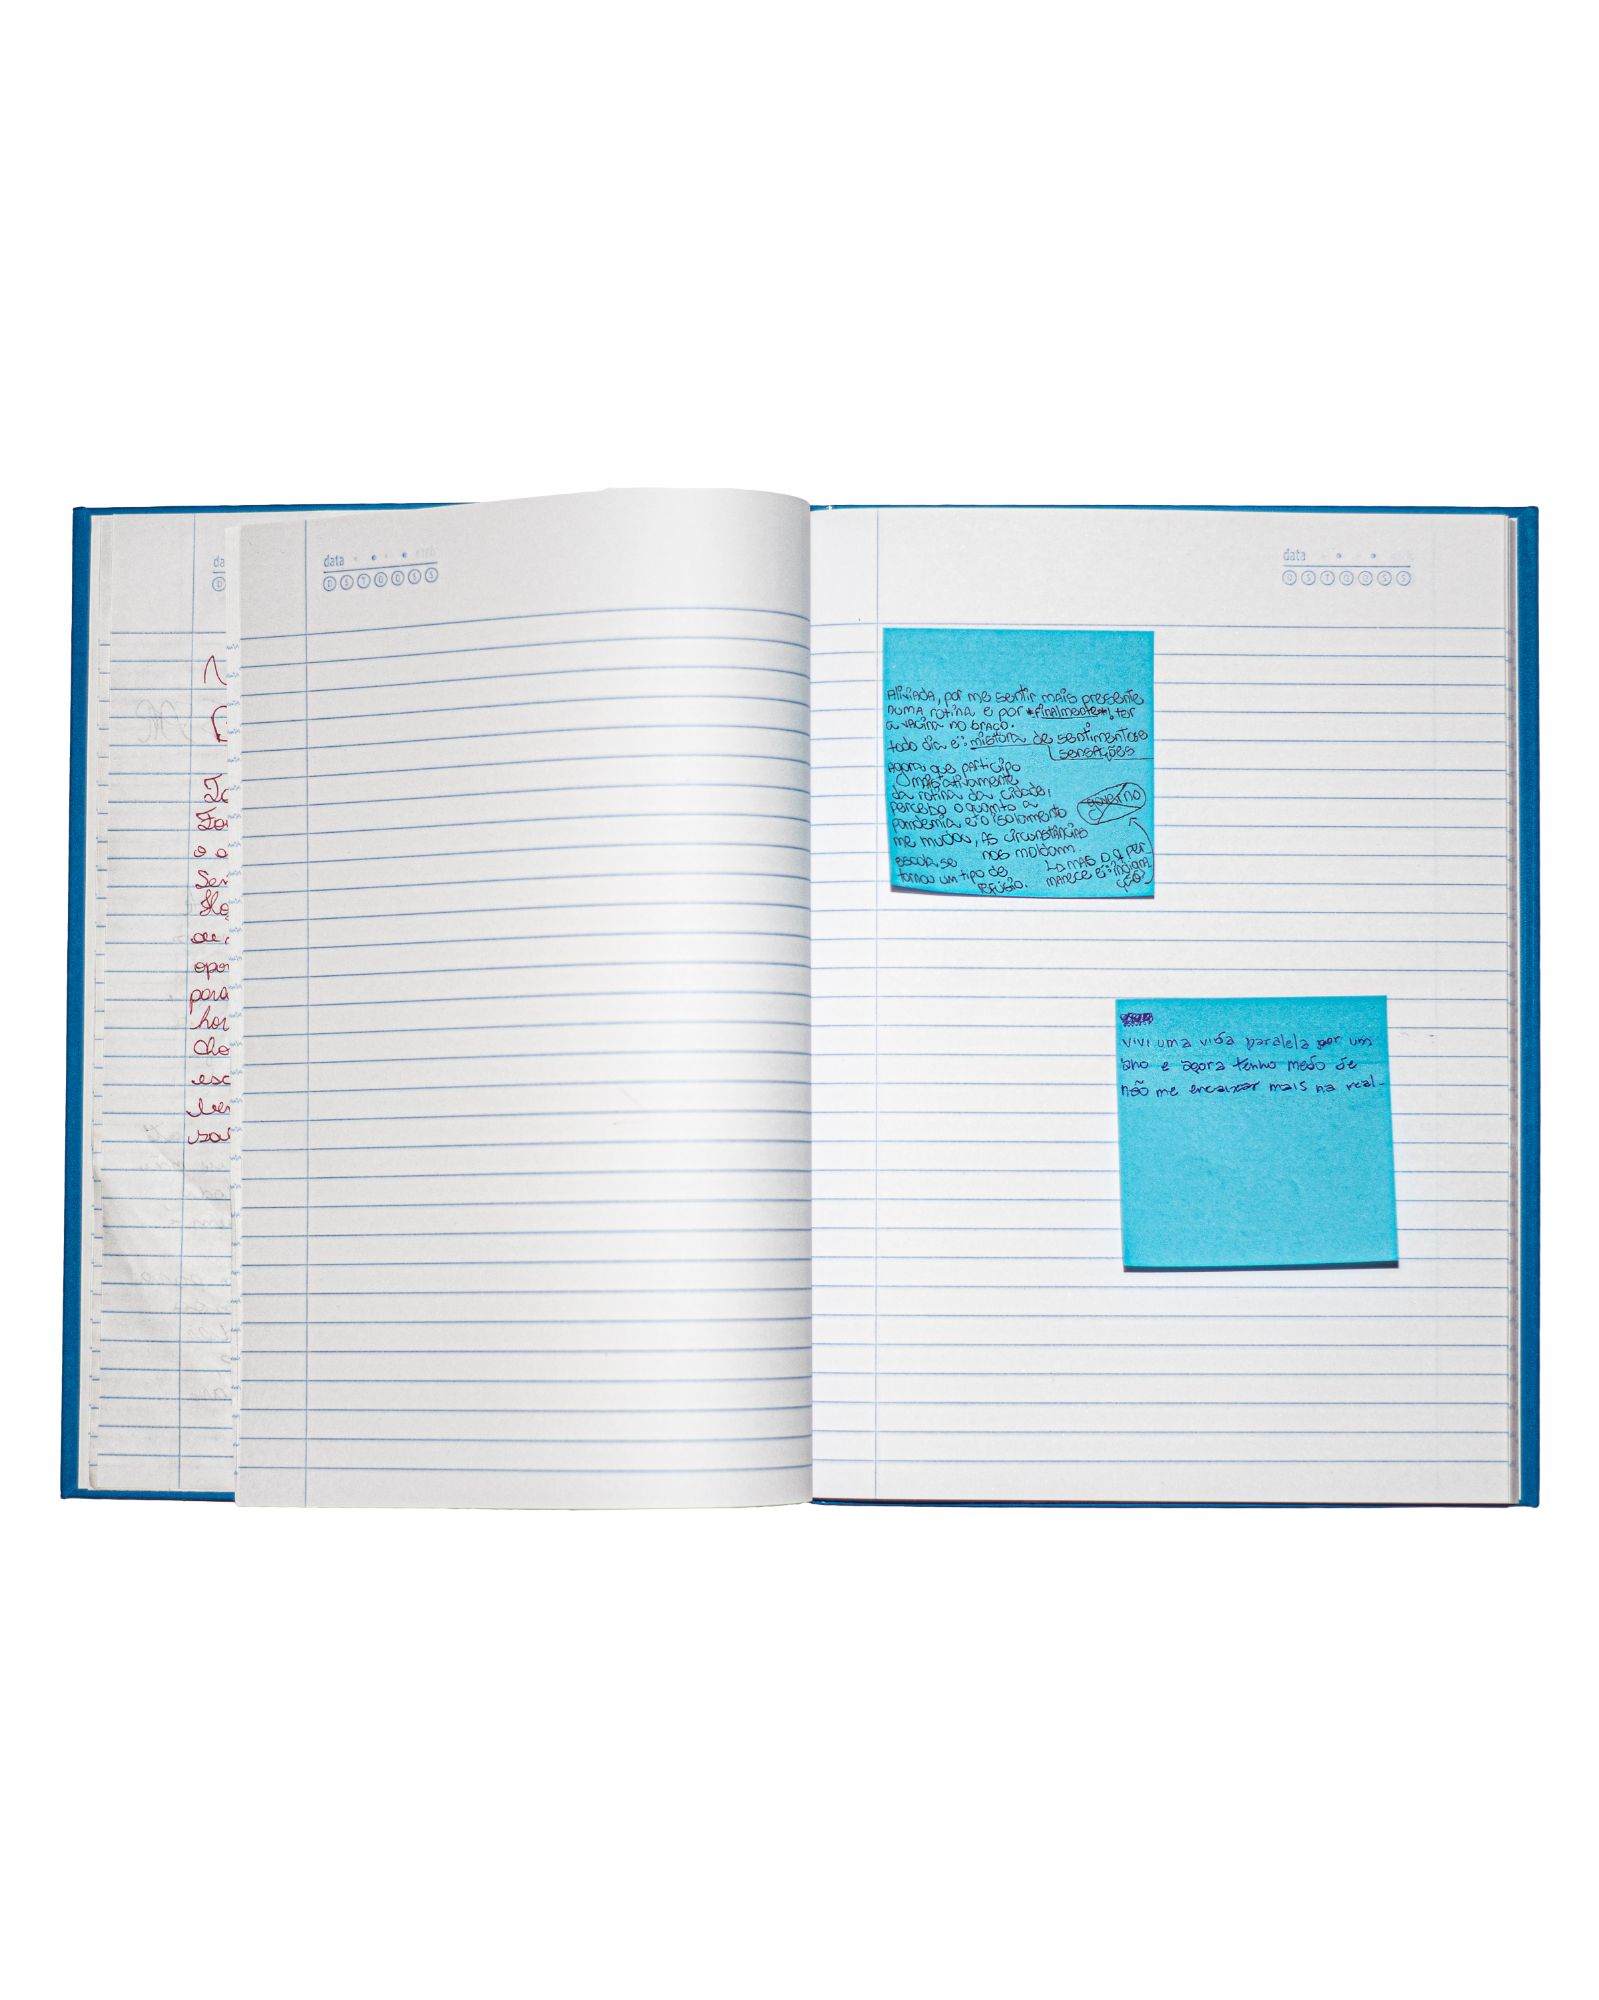 data
D S T Q Q S S
data
D S T Q Q S S
da
D
ou
opor
para
hor
cho
esc
Aliviada, por me sentir mais presente
numa rotina e por *finalmente*! ter
a vacina no braço.
todo dia é: mistura de sentimentos e
sensações
agora que participo
mais ativamente
da rotina da cidade,
percebo o quanto a
pandemia e o isolamento
me mudou, as circunstâncias
nos moldam.
escola se
tornou um tipo de
refúgio.
governo
mas o q per-
manece é: indigna
ção
vivi uma vida paralela por um
ano e agora tenho medo de
não me encaixar mais na real-